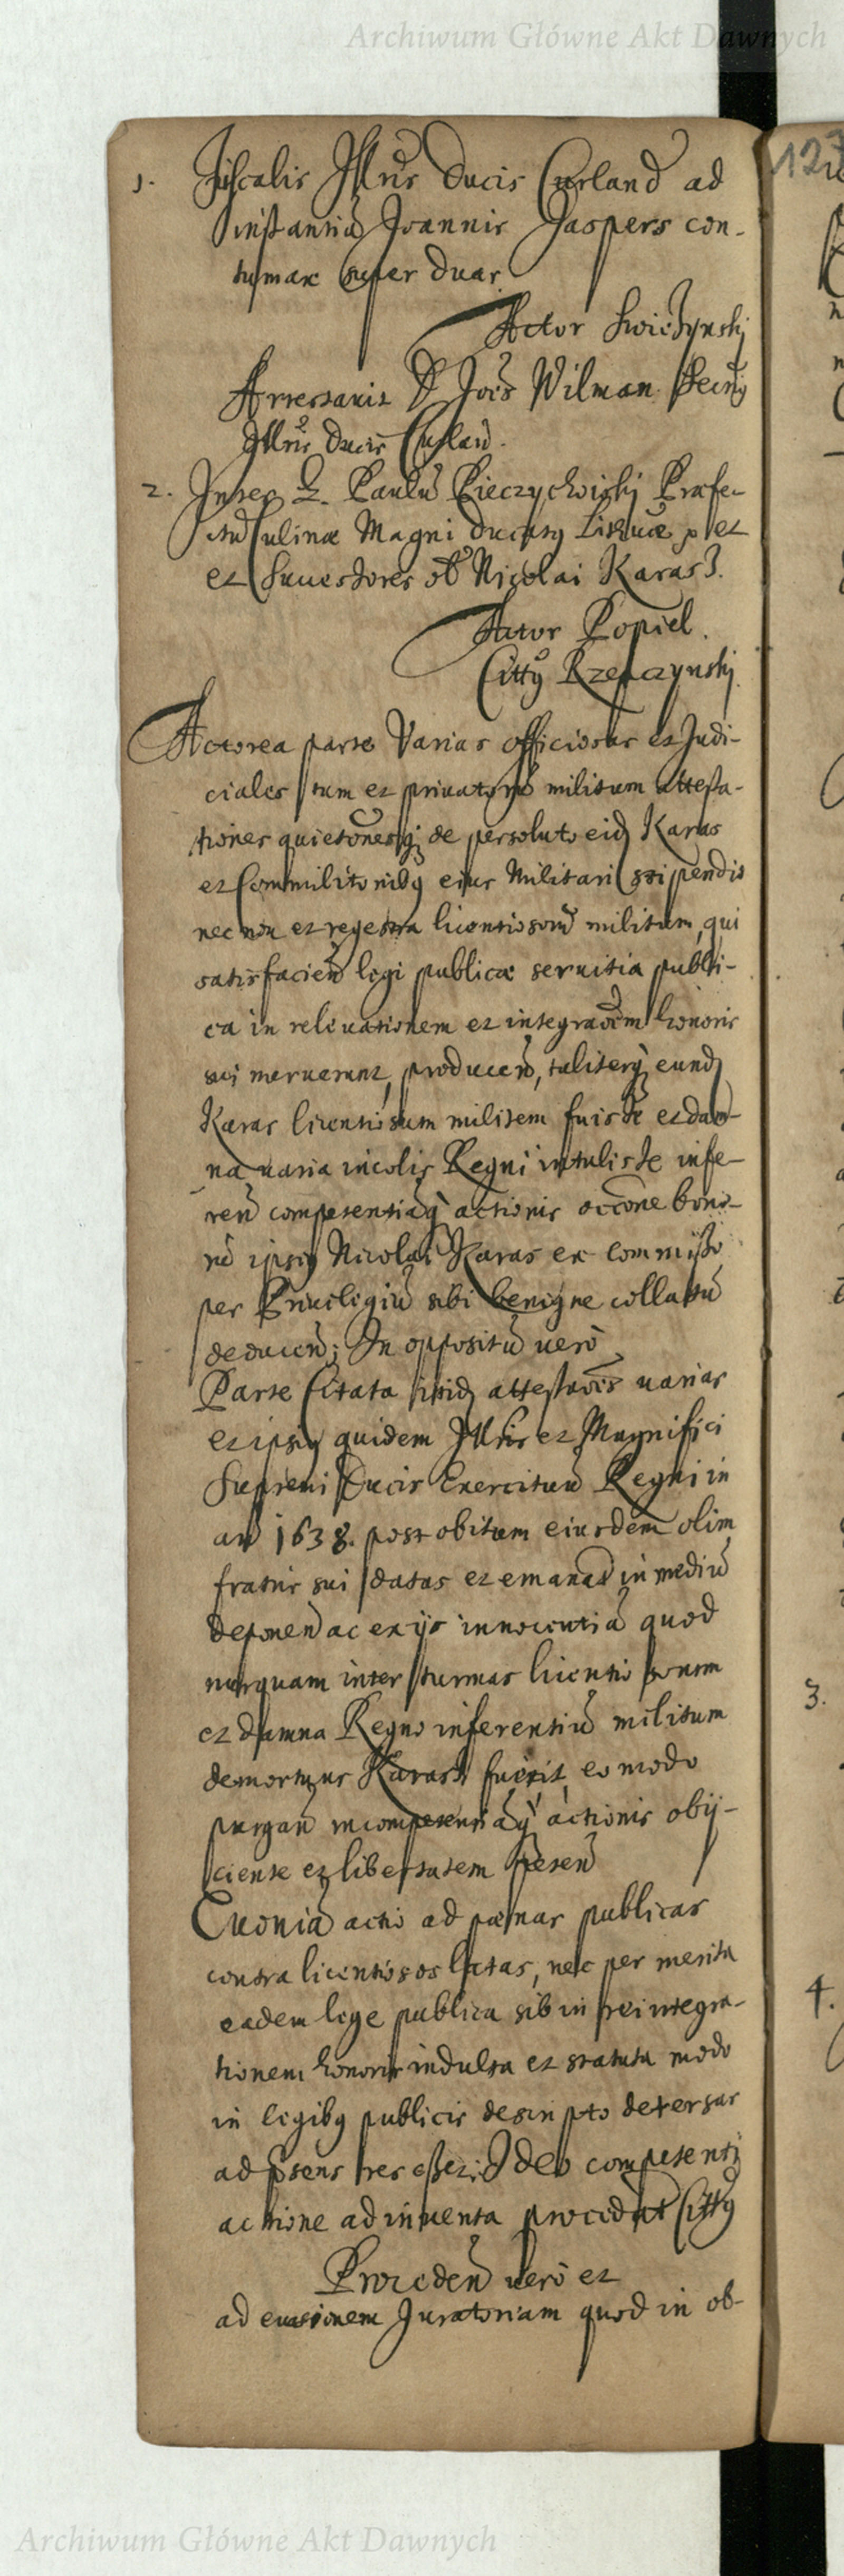 Archiwum Główne Akt Dawnych
1. Fiscalis Illris Ducis Curland ad
instantiā Joannis Jaspers con-
tumax super duas
Actor Swiedzynskj
Arrestavit D Jois Wilman
Illris Ducis Curlan̄.
2. Inter G. Paulū Pieczychwiskj Præfe-
ctū Culinæ Magni Ducatg Lituaē
et Successores ol Nicolai Karas
Actor Popiel.
Cittg Rzepczynskj
Actorea parte Varias officiosas et Judi-
ciales tum et privatorū militum attesta-
tiones quietōnesq de persoluto eid Karas
et Commilitonibg eius Militari stipendio
nec non et regestra licentiosorū militum, qui
satisfacien̄ legi publicæ servitia publi-
ca in relevationem et integraōem honoris
sui meruerunt, producen̄, taliterq eund
Karas licentiosum militem fuisse et dam-
na varia incolis Regni intulisse infe-
ren̄ competentiāq actionis occōne bono-
rū ipsig Nicolai Karas ex commisso
per Privilegiū sibi benigne collatū
deducen̄; In oppositū verò
Parte Citata itid attestaōēs varias
et ipsig quidem Illris et Magnifici
Supremi Ducis Exercituū Regni in
an̄ 1638. post obitum eiusdem olim
fratris sui datas et emanat in mediū
deponen̄ ac ex ijs innocentiā quod
nunquam inter turmas licentiosorum
et damna Regno inferentiū militum
demortuus Karas fuerit eo modo
purgan̄ incompetentiāq actionis obij-
ciente et libertatem peten̄
Quoniā actio ad pænas publicas
contra licentiosos latas, nec per merita
eadem lege publica sibi in reintegra-
tionem honoris indulta et statuta modo
in legibg publicis descripto detersas
ad psens res esset Ideo competenti
actione adinventa procedat Cittg
Proceden̄ verò et
ad evasionem Juratoriam quod in ob-
127
3.
4.
Archiwum Główne Akt Dawnych